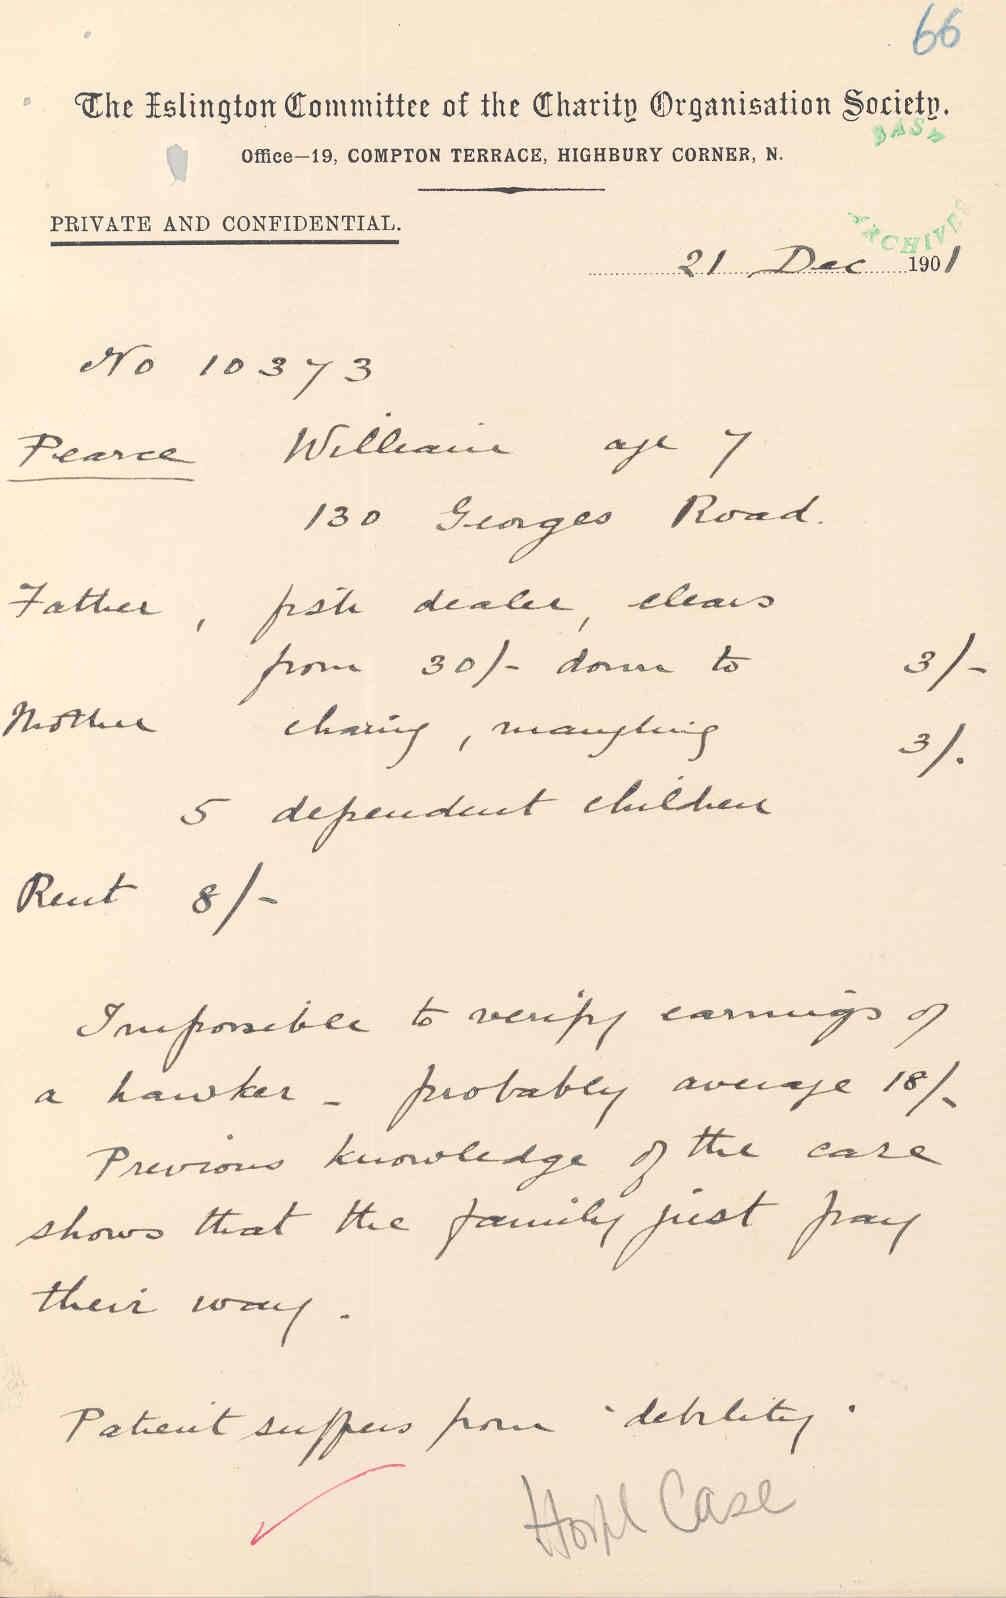 66
The Islington Committee of the Charity Organisation Society.
BASH
Office—19, COMPTON TERRACE, HIGHBURY CORNER, N.
PRIVATE AND CONFIDENTIAL.
ARCHIVES
21 Dec 1901
No 10373
Pearce William age 7
130 Georges Road.
Father, fish dealer, clears
from 30/- down to 3/-
Mother charing, mangling 3/.
5 dependent children
Rent 8/-
Impossible to verify earnings of
a hawker - probably average 18/-
Previous knowledge of the case
shows that the family just pay
their way.
Patient suffers from 'debility'
Hospl Case